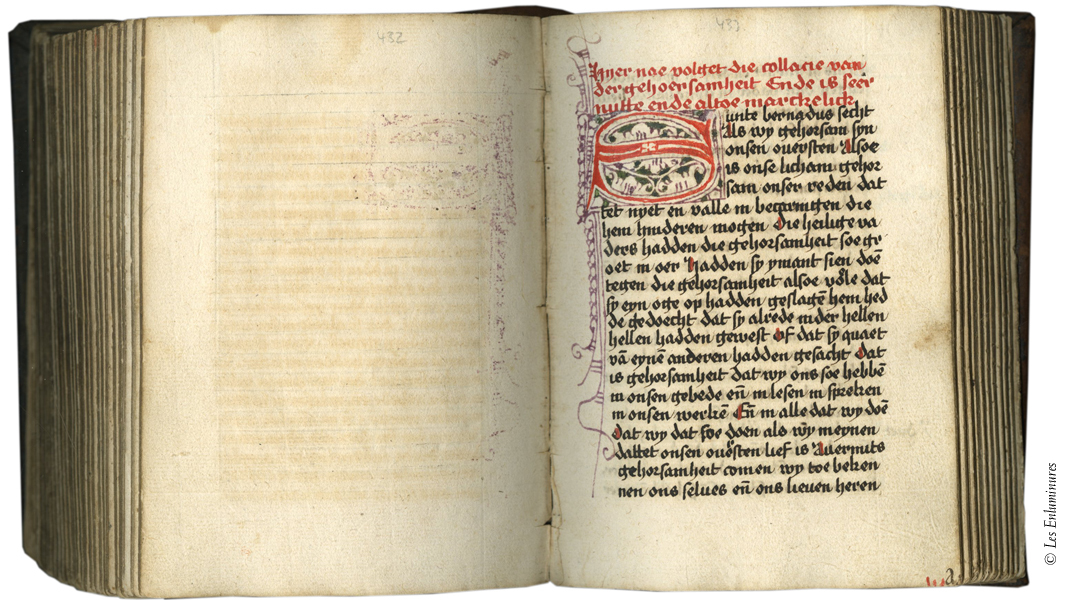 432
433
Hyer nae volget die collacie van
der gehoersamheit Ende is seer
nutte ende altoe marckelick
Sunte bernadus secht
Als wy gehorsam syn
onsen oversten Alsoe
is onse licham gehor
sam onser reden dat
tet nyet en valle in begarnigen die
hem hinderen mogen Die heilige va
ders hadden die gehorsamheit soe gr
oet in oer Hadden sy ymant sien doē
tegen die gehorsamheit alsoe vōle dat
sy eyn oge op hadden geslagē hem hed
de gedoecht dat sy alrede in der hellen
hellen hadden gewest Of dat sy quaet
vā eynē anderen hadden gesacht Dat
is gehorsamheit dat wy ons soe hebbē
in onsen gebede eñ in lesen in spreken
in onsen werkē Eñ in alle dat wy doē
Dat wy dat soe doen als wy meynen
dattet onsen ov̄sten lief is Avermits
gehorsamheit comen wy toe beken
nen ons selves eñ ons lieven heren
a
© Les Enluminures